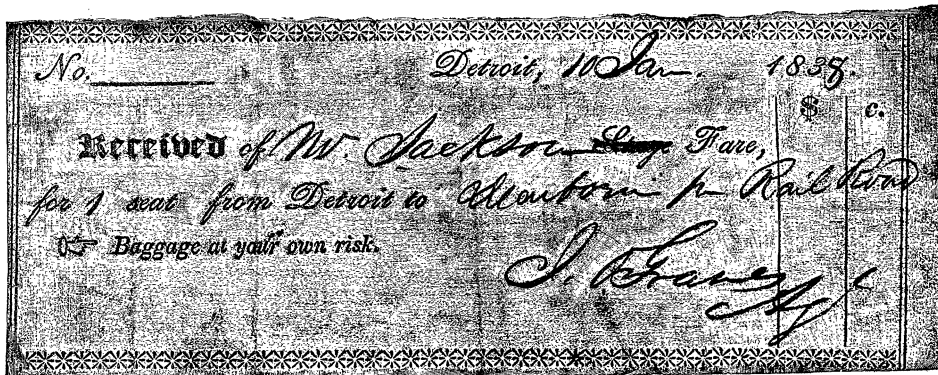 No. Detroit, 10 Jan. 1838.
$ c.
Received of Mr. Jackson Stage Fare,
for 1 seat from Detroit to Dearborn pr Rail Road
Baggage at your own risk.
J. Graves
Agt